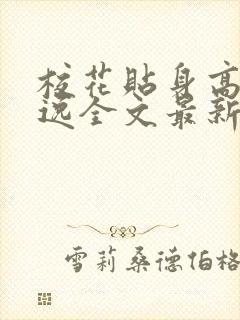 校花贴身高
逸全文最新
雪莉桑德伯格